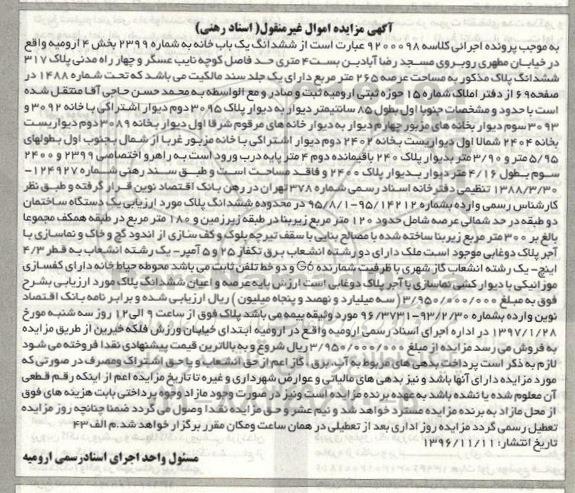 آگهی مزایده اموال غیرمنقول( اسناد رهنی)
به موجب پرونده اجرائی کلاسه ۹۲۰۰۰۹۸ عبارت است از ششدانگ یک باب خانه به شماره ۲۳۹۹ بخش ۴ ارومیه واقع
در خیابان مطهری روبروی مسجد رضا آبادبن بست۴ متری حد فاصل کوچه نایب عسگر و چهار راه مدنی پلاک ۳۱۷
ششدانگ پلاک مذکور به مساحت عرصه ۲۶۵ متر مربع دارای یک جلد سند مالکیت می باشد که تحت شماره ۱۴۸۸ در
صفحه ۶۹ از دفتر املاک شماره ۱۵ حوزه ثبتی ارومیه ثبت و صادر و مع الواسطه به محمد حسن حاجی آقا منتقل شده
است با حدود و مشخصات جنوبا اول بطول ۸۵ سانتیمتر دیوار به دیوار پلاک ۳۰۹۵ دوم دیوار اشتراکی با خانه ۳۰۹۲ و
۳۰۹۳ سوم دیوار بخانه های مزبور چهارم دیوار به دیوار خانه های مرقوم شرقا اول دیوار بخانه ۳۰۸۹ دوم دیواریست
بخانه ۲۴۰۴ شمالا اول دیواریست بخانه ۲۴۰۲ دوم دیوار اشتراکی با خانه مزبور غربا از شمال بجنوب اول بطولهای
۵/۹۵ متر و ۳/۹۰ متر بدیوار پلاک ۲۴۰ باقیمانده دوم ۴ متر پایه درب ورود است به راهرو اختصاصی ۲۳۹۹ و ۲۴۰۰
سوم بطول ۴/۱۶ متر دیوار بدیوار پلاک ۲۴۰۰ و فاقد مساحت است و طبق سند رهنی شماره ۱۲۴۹۲۷-
۱۳۸۸/۳/۳۰ تنظیمی دفترخانه اسناد رسمی شماره ۳۷۸ تهران در رهن بانک اقتصاد نوین قرار گرفته و طبق نظر
کارشناس رسمی وارده بشماره ۹۵/۱۴۲۱۲-۹۵/۸/۱ در محدوده ششدانگ پلاک مورد ارزیابی یک دستگاه ساختمان
دو طبقه در حد شمالی عرصه شامل حدود ۱۲۰ متر مربع زیربنا در طبقه زیرزمین و ۱۸۰ متر مربع در طبقه همکف مجموعا
بالغ بر ۳۰۰ متر مربع زیربنا ساخته شده با مصالح بنایی با سقف تیرچه بلوک و کف سازی از اندود گچ و خاک و نماسازی با
آجر پلاک دوغابی موجود است ملک دارای دو رشته انشعاب برق تکفاز ۲۵ و ۵ آمپر- یک رشته انشعاب به قطر ۴/۳
اینچ- یک رشته انشعاب گاز شهری با ظرفیت شمارنده G۶ و دو خط تلفن ثابت می باشد محوطه حیاط خانه دارای کفسازی
موزائیکی با دیوار کشی نماسازی با آجر پلاک دوغابی است ارزش پایه عرصه و اعیان ششدانگ پلاک مورد ارزیابی بشرح
فوق به مبلغ ۳/۹۵۰/۰۰۰/۰۰۰ ( سه میلیارد و نهصد و پنجاه میلیون ) ریال ارزیابی شده و برابر نامه بانک اقتصاد
نوین وارده بشماره ۹۳/۲/۳۰-۹۶/۳۷۳۱ مورد وثیقه بیمه می باشد پلاک فوق از ساعت ۹ الی ۱۲ روز سه شنبه مورخ
۱۳۹۷/۱/۲۸ در اداره اجرای اسناد رسمی ارومیه واقع در ارومیه ابتدای خیابان ورزش فلکه خیرین از طریق مزایده
به فروش می رسد مزایده از مبلغ ۳/۹۵۰/۰۰۰/۰۰۰ ریال شروع و به بالاترین قیمت پیشنهادی نقدا فروخته می شود
لازم به ذکر است پرداخت بدهی های مربوط به آب، برق ، گاز اعم از حق انشعاب و یا حق اشتراک ومصرف در صورتی که
مورد مزایده دارای آنها باشد و نیز بدهی های مالیاتی و عوارض شهرداری و غیره تا تاریخ مزایده اعم از اینکه رقم قطعی
آن معلوم شده یا نشده باشد به عهده برنده مزایده است ونیز در صورت وجود مازاد وجوه پرداختی بابت هزینه های فوق
از محل مازاد به برنده مزایده مسترد خواهد شد و نیم عشر و حق مزایده نقدا وصول می گردد ضمنا چنانچه روز مزایده
تعطیل رسمی گردد مزایده روز اداری بعد از تعطیلی در همان ساعت ومکان مقرر برگزار خواهد شد.م الف ۴۳
تاریخ انتشار: ۱۳۹۶/۱۱/۱۱
مسئول واحد اجرای اسنادرسمی ارومیه